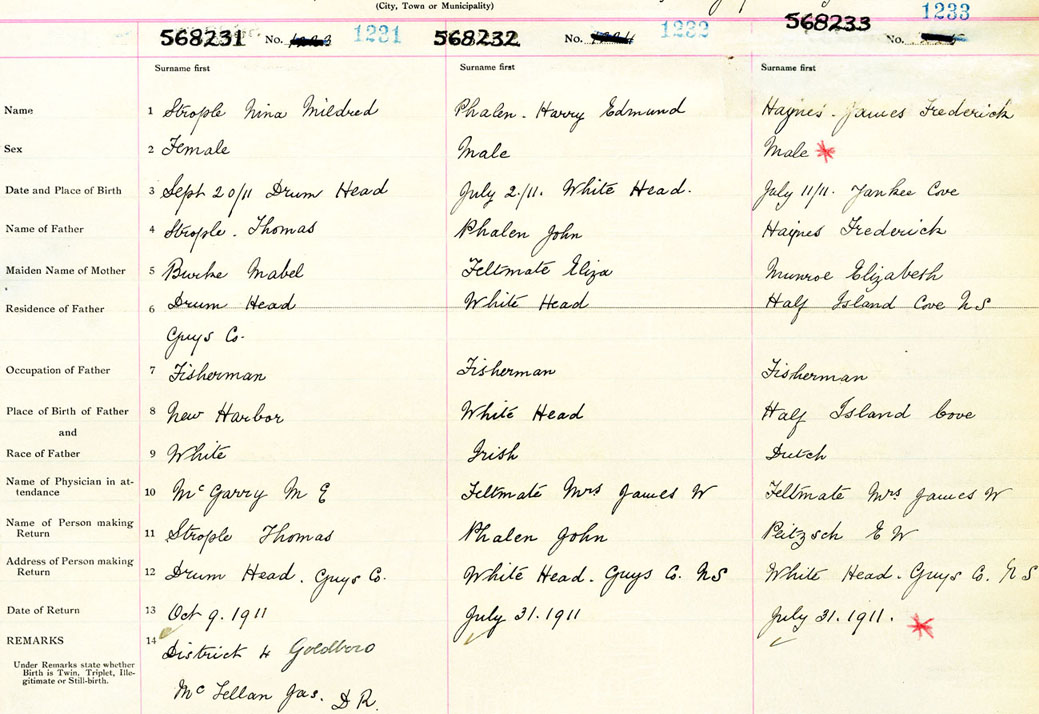 (City, Town or Municipality)
568231 No. 1231 568232 No. 1232 568233 No. 1233
Surname first Surname first Surname first
Name 1 Strople Nina Mildred Phalen. Harry Edmund Haynes. James Frederick
Sex 2 Female Male Male *
Date and Place of Birth 3 Sept 20/11 Drum Head July 2/11. White Head. July 11/11. Yankee Cove
Name of Father 4 Strople. Thomas Phalen John Haynes Frederick
Maiden Name of Mother 5 Burke Mabel Feltmate Eliza Munroe Elizabeth
Residence of Father 6 Drum Head White Head Half Island Cove NS
Guys Co.
Occupation of Father 7 Fisherman Fisherman Fisherman
Place of Birth of Father 8 New Harbor White Head Half Island Cove
and
Race of Father 9 White Irish Dutch
Name of Physician in at-
tendance 10 McGarry M E Feltmate Mrs James W Feltmate Mrs James W
Name of Person making
Return 11 Strople Thomas Phalen John Peitzsch E W
Address of Person making
Return 12 Drum Head. Guys Co. White Head. Guys Co. NS White Head. Guys Co. NS
Date of Return 13 Oct 9. 1911 July 31. 1911 July 31. 1911. *
REMARKS 14 District 4 Goldboro
Under Remarks state whether
Birth is Twin, Triplet, Ille-
gitimate or Still-birth.
Jas. D R.